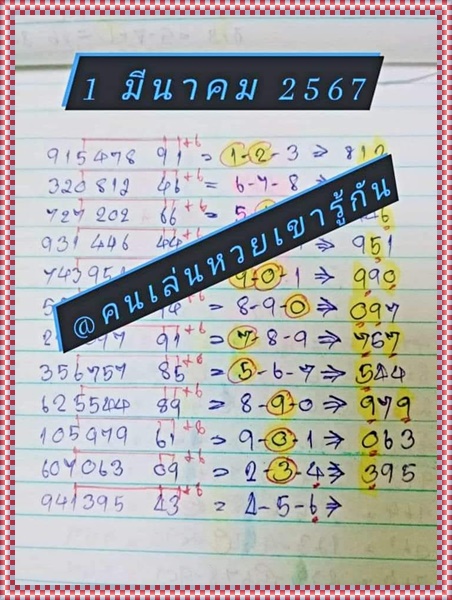 1 มีนาคม 2567
915478 91 +6 = 1-2-3 ⇒ 812
320812 46 +6 = 6-7-8 ⇒
727202 66 +6 = 5
931446 44 1 ⇒ 951
743951 9-0-1 ⇒ 990
14 = 8-9-0 ⇒ 097
97 91 +6 = 7-8-9 ⇒ 757
356757 85 +6 = 5-6-7 ⇒ 544
625544 89 +6 = 8-9-0 ⇒ 979
105979 61 +6 = 9-0-1 ⇒ 063
607063 09 +6 = 2-3-4 ⇒ 395
941395 43 +6 = 4-5-6 ⇒
@คนเล่นหวยเขารู้กัน